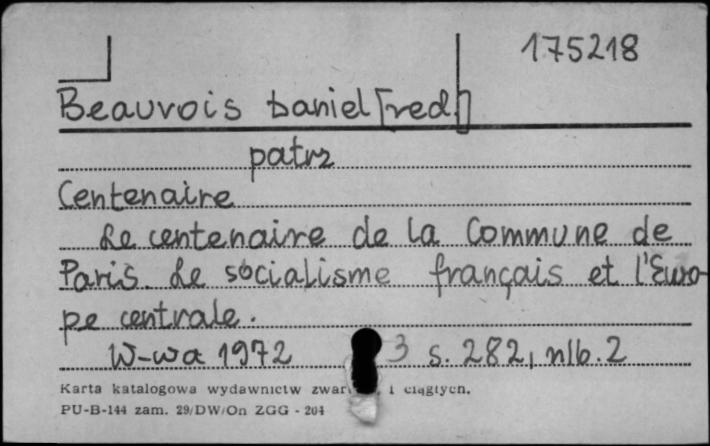 175218
Beauvois Daniel [red.]
patrz
Centenaire
Le centenaire de la Commune de
Paris. Le socialisme français et l'Euro-
pe centrale.
W-wa 1972 3 s. 282, nlb. 2
Karta katalogowa wydawnictw i ciągłych.
PU-B-144 zam. 29/DW/On ZGG - 204